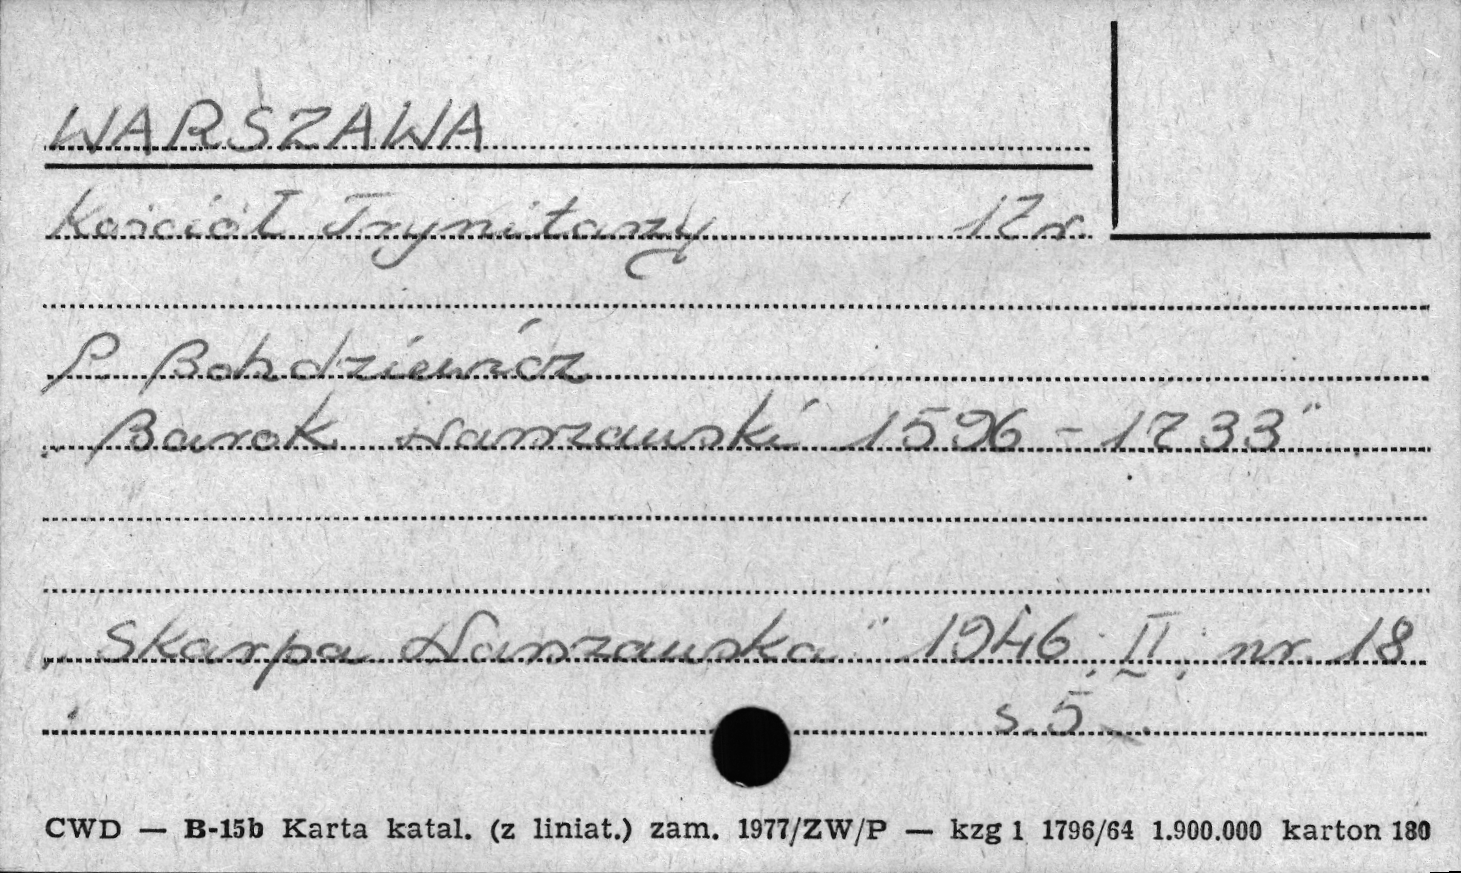 WARSZAWA
Kościół Trynitarzy 17 r.
P. Bohdziewicz
„Barok warszawski 1596 - 1733"
„Skarpa Warszawska" 1946. II. nr. 18
s. 5
CWD — B-15b Karta katal. (z liniat.) zam. 1977/ZW/P — kzg 1 1796/64 1.900.000 karton 180